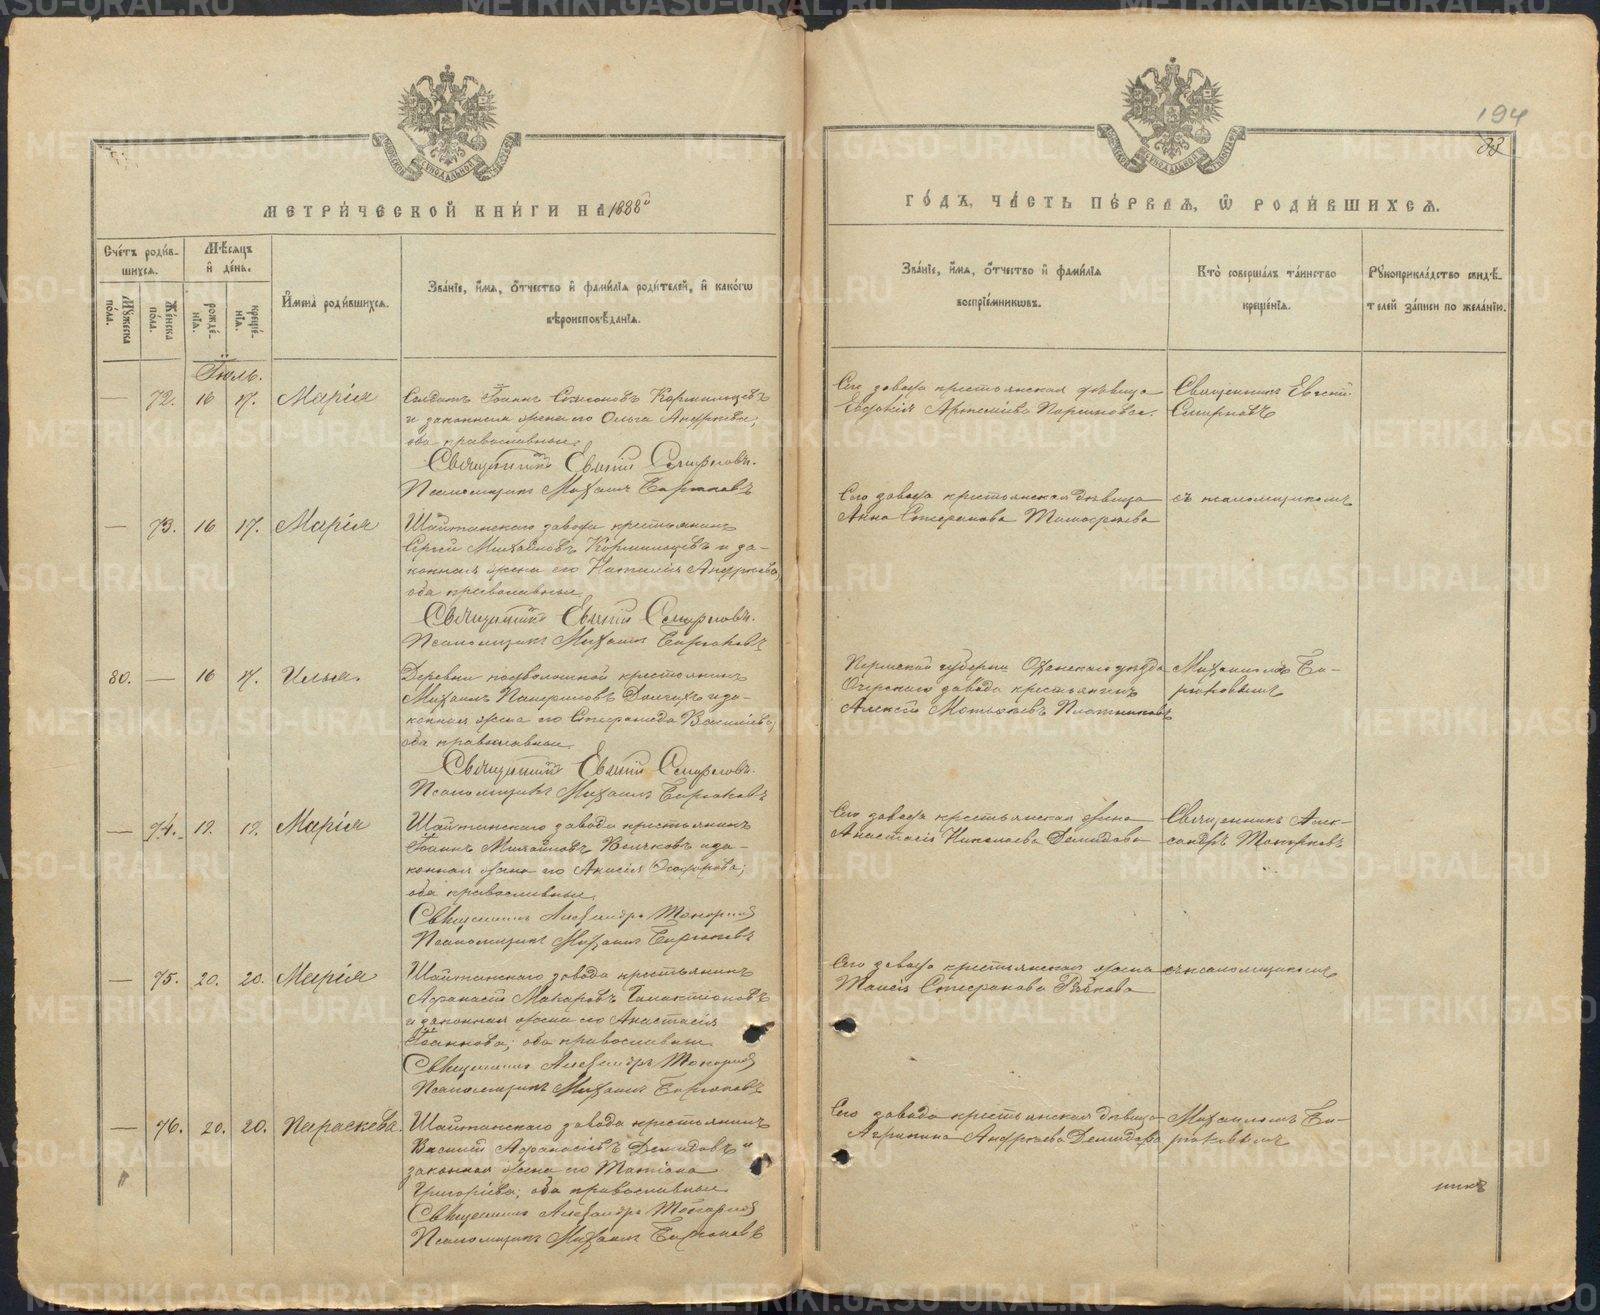 194
33
МЕТРИ́ЧЕСКОЙ КНИ́ГИ НА 1888й
ГО́ДЪ, ЧА́СТЬ ПЕ́РВАѦ, Ѿ РОДИ́ВШИХСѦ.
Сче́тъ роди́вшихсѧ.
Мꙋжеска по́ла.
Же́нска по́ла.
Мѣ́сѧцъ и҆ де́нь.
рожде́нїѧ.
креще́нїѧ.
И҆мена̀ роди́вшихсѧ.
Зва́нїе, и҆́мѧ, ѻ҆́тчество и҆ фами́лїѧ роди́телей, и҆ како́гѡ
вѣроисповѣ́данїѧ.
Зва́нїе, и҆́мѧ, ѻ҆́тчество и҆ фами́лїѧ
воспрїе́мникѡвъ.
Кто̀ соверша́лъ та́инство
креще́нїѧ.
Рꙋкоприкла́дство свидѣ́-
телей за́писи по жела́нїю.
Іюль.
— 72. 16 17. Марія
Солдатъ Іоаннъ Симеоновъ Кормильцевъ
и законная жена его Ольга Андреева;
оба православные.
Священникъ Евгеній Смирновъ.
Псаломщикъ Михаилъ Бирюковъ
Сего завода крестьянская дѣвица
Евдокія Артеміева
Священникъ Евгеній
Смирновъ
— 73. 16 17. Марія
Шайтанскаго завода крестьянинъ
Сергій Михайловъ Кормильцевъ и за-
конная жена его Наталія Андреева,
оба православные.
Священникъ Евгеній Смирновъ.
Псаломщикъ Михаилъ Бирюковъ
Сего завода крестьянская дѣвица
Анна Стефанова Тимофеева
съ псаломщикомъ
80. — 16 17. Илья.
Деревни Подволошной крестьянинъ
Михаилъ Панфиловъ Долгихъ и за-
конная жена его Степанида Василіева;
оба православные.
Священникъ Евгеній Смирновъ.
Псаломщикъ Михаилъ Бирюковъ
Пермской губерніи Оханскаго уѣзда
Очерскаго завода крестьянинъ
Алексій Матвѣевъ Плотниковъ
Михаиломъ Би-
рюковымъ
— 74. 19. 19. Марія
Шайтанскаго завода крестьянинъ
Іоаннъ Михайловъ Волковъ и за-
конная жена его Анисія
оба православные.
Священникъ Александръ Топорковъ
Псаломщикъ Михаилъ Бирюковъ
Сего завода крестьянская жена
Анастасія Николаева Демидова
Священникъ Алек-
сандръ Топорковъ
— 75. 20. 20. Марія
Шайтанскаго завода крестьянинъ
Афанасій Макаровъ Галактіоновъ
и законная жена его Анастасія
Іоаннова; оба православные.
Священникъ Александръ Топорковъ
Псаломщикъ Михаилъ Бирюковъ
Сего завода крестьянская жена
Таисія Стефанова
съ псаломщикомъ
— 76. 20. 20. Параскева.
Шайтанскаго завода крестьянинъ
Василій Афанасіевъ Демидовъ и
законная жена его Татіана
Григоріева; оба православные
Священникъ Александръ Топорковъ
Псаломщикъ Михаилъ Бирюковъ
Сего завода крестьянская дѣвица
Агрипина Андреева Демидова
Михаиломъ Би-
рюковымъ
METRIKI.GASO-URAL.RU